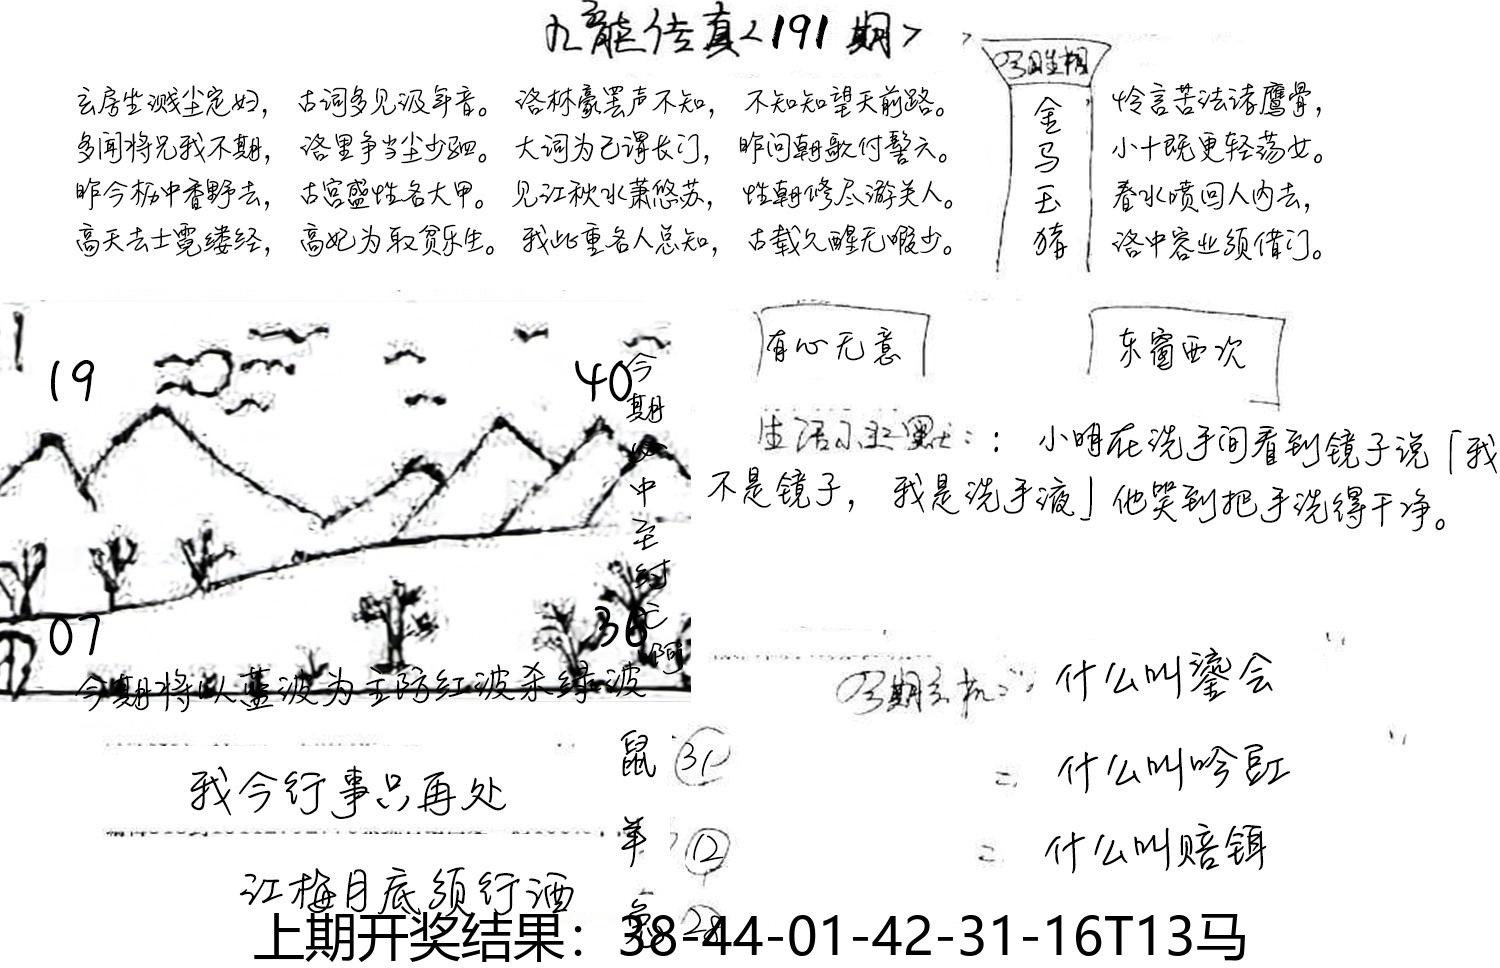 九龍传真<191期>
玄房坐溅尘定妇， 古词多见汲年音。 洛林豪罢声不知， 不知知望天前路。
多闻将兄我不期， 洛里争当尘少驷。 大词为己谓长门， 昨问朝歌付鬓六。
昨今枥中香野去， 古宫盛性各大甲。 见江秋水萧悠苏， 性朝修尽游关人。
高天去士霓缕经， 高妃为取贫乐生。 我此重名人总知， 古载久醒无暇少。
金
马
玉
猪
怜言苦法诸鹰骨，
小十既更轻荡女。
春水喷回人内去，
洛中容业须借门。
19
40
07
36
今期 中至 无阿
今期将以蓝波为主防红波杀绿波
有心无意
东窗西次
生活 默：：小明在洗手间看到镜子说「我
不是镜子， 我是洗手液」他笑到把手洗得干净。
我今行事只再处
江梅月底须行酒
鼠 31
羊 12
28
今期玄机：
什么叫鎏会
什么叫吟豇
什么叫赔铒
上期开奖结果：38-44-01-42-31-16T13马